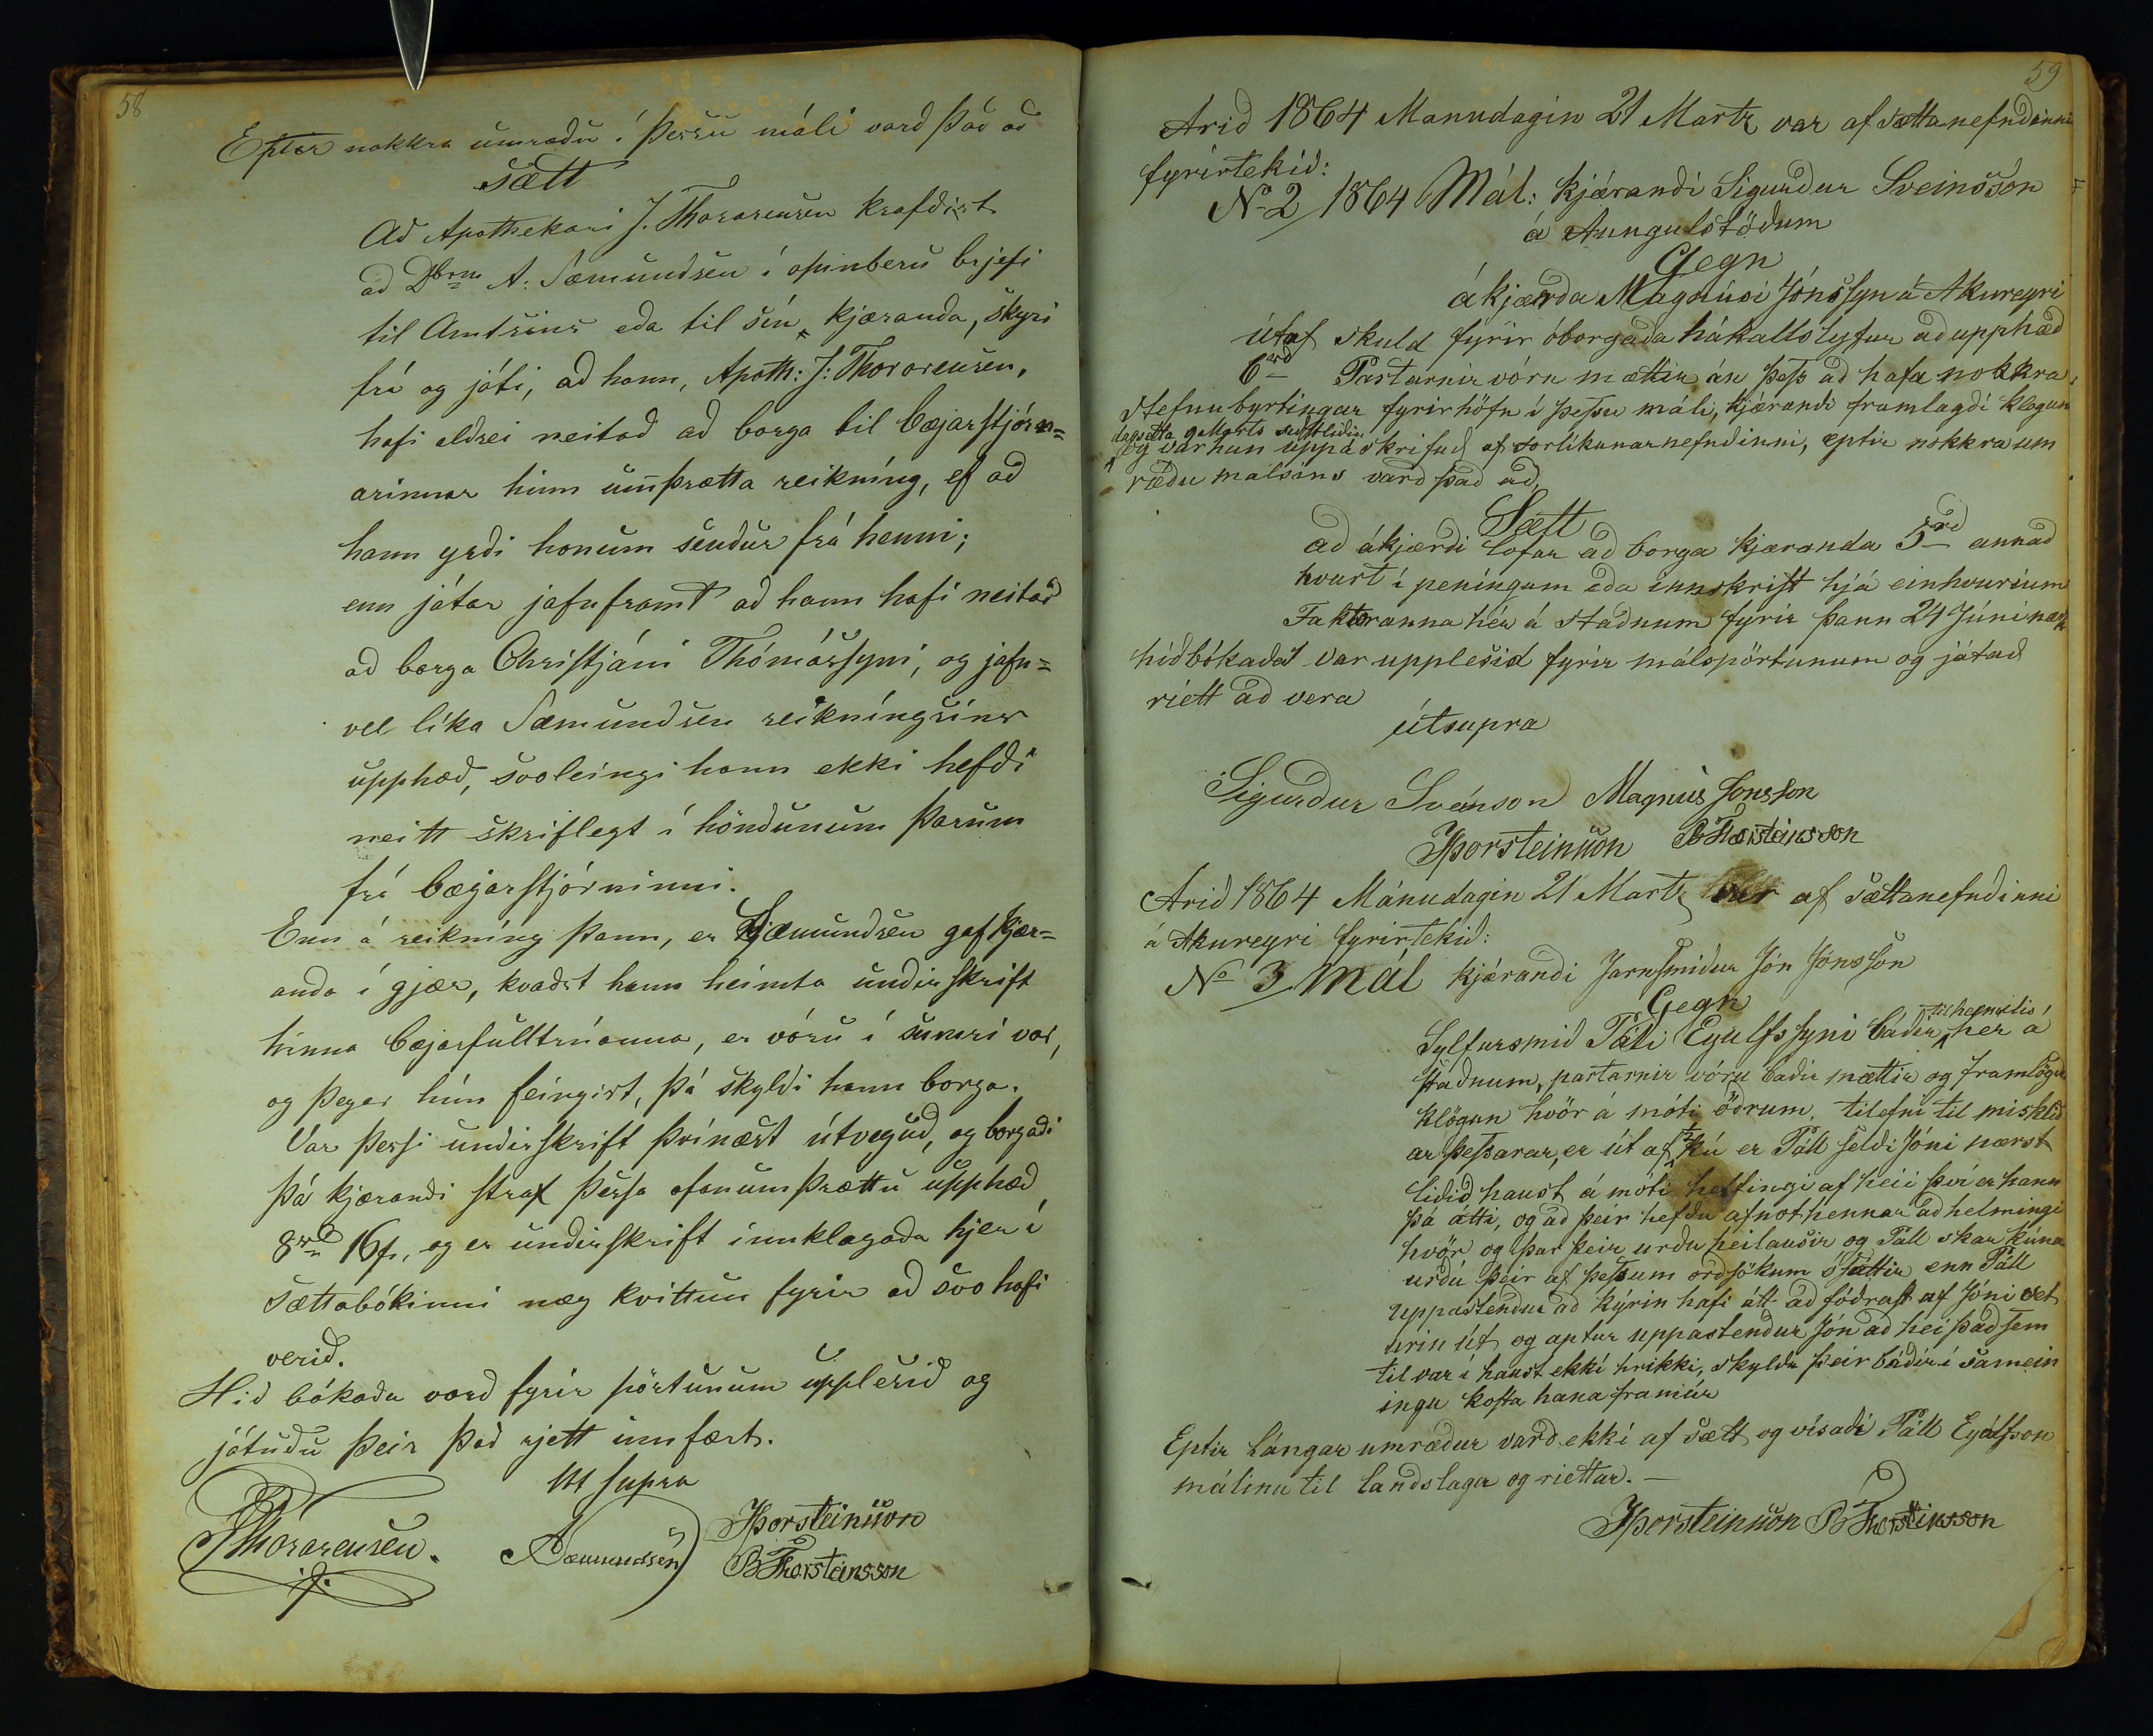 58
Eptir nokkra umrædu í þessu máli vard það að
sætt
Að Apothekari J. Thorarensen krafdist
að Dbrm A: Sæmundsen í opinberu brjefi
til Amtsins eda til sín, kjæranda, skyri
frá og játi, að hann, Apoth: J: Thorarensen,
hafi aldrei neitað að borga til bæjarstjórn=
arinnar hinn umþrætta reikníng, ef að
hann yrði honum sendur frá henni;
enn játar jafnframt að hann hafi neitað
að borga Christjáni Thómássyni, og jafn=
vel líka Sæmundsen reikníngsins
upphæd, svoleingi hann ekki hefði
neitt skriflegt í höndunum þarum
frá bæjarstjórninni.
Enn á reikníng þann, er Sæmundsen gaf kjær=
anda í gjær, kvaðst hann heimta undirskrift
hinna bæjarfulltrúanna, er vóru í sumri var,
og þegar hún feingist, þá skyldi hann borga.
Var þessi undirskrift þvínæst útvegud, og borgaði
þá kjærandi strax þessa ofanumþrættu upphæd
8rd 16s, og er undirskrift innklagada hjer í
sættabókinni næg kvittun fyrir að svo hafi
verið.
Hið bókada vard fyrir pörtunum upplesið og
játuðu þeir það rjett innfært.
Ut supra
JThórarensen.
ASæmundsen
JÞorsteinsson
BThorsteinsson
59
Arið 1864 Manudagin 21 Marts var af sættanefndinni
fyrirtekið:
No 2/1864 Mál: kjærandi Sigurður Sveinsson
á Aungulstöðum
Gegn
ákjærda Magnúsi Jónssyn á Akureyri
útaf skuld fyrir óborgaða hákallslyfur að upphæð
6rd Partarnir vóru mættir án þess að hafa nokkra
stefnubyrtingar fyrirhöfn í þessu máli, kjærandi framlagði klögun
dagsetta 9 Marts sidstliðin
og var hún uppáskrifuð af forlíkunarnefndinni, eptir nokkra um
rædu malsins varð það að
Sætt
að ákjærði lofar að borga kjæranda 5rd annað
hvurt í peníngum eda innskrift hjá einhvurium
Faktoranna hér á staðnum fyrir þann 24 Júni næst
hið bókaða var upplesið fyrir málspörtunum og játað
riett að vera
útsupra
Sigurður Sveinson Magnús Jónsson
JÞorsteinsson BThorsteinsson
Arið 1864 Mánudagin 21 Marts var af sættanefndinni
á Akureyri fyrirtekið:
No 3 Mál kjærandi Jarnsmiður Jón Jónsson
Gegn
til heimilis
Sylfursmið Páli Eyulfssyni báðir her á
staðnum, partarnir vóru báðir mættir og framlögðu
klögun hvör á móti öðrum, tilefni til misklíð
ar þessarar, er út af 1/2 kú er Páll seldi Jóni næst
liðið haust á móti helfingi af heii því er hann
þá átti, og að þeir hefðu afnot hennar að helmingi
hvör og þar þeir urðu heilausir og Páll skar kúna
urðu þeir af þessum orðsökum ósáttir enn Páll
uppástendur að kýrin hafi átt að fóðrast af Jóni vet
urin út og aptur uppastendur Jón að hei það sem
til var í haust ekki hrikki, skyldu þeir báðir í samein
ingu kosta hana framúr
Eptir lángar umrædur varð ekki af sætt og vísaði Páll Eyólfsson
málinu til landslaga og riettar.—
JÞorsteinsson BThorsteinsson